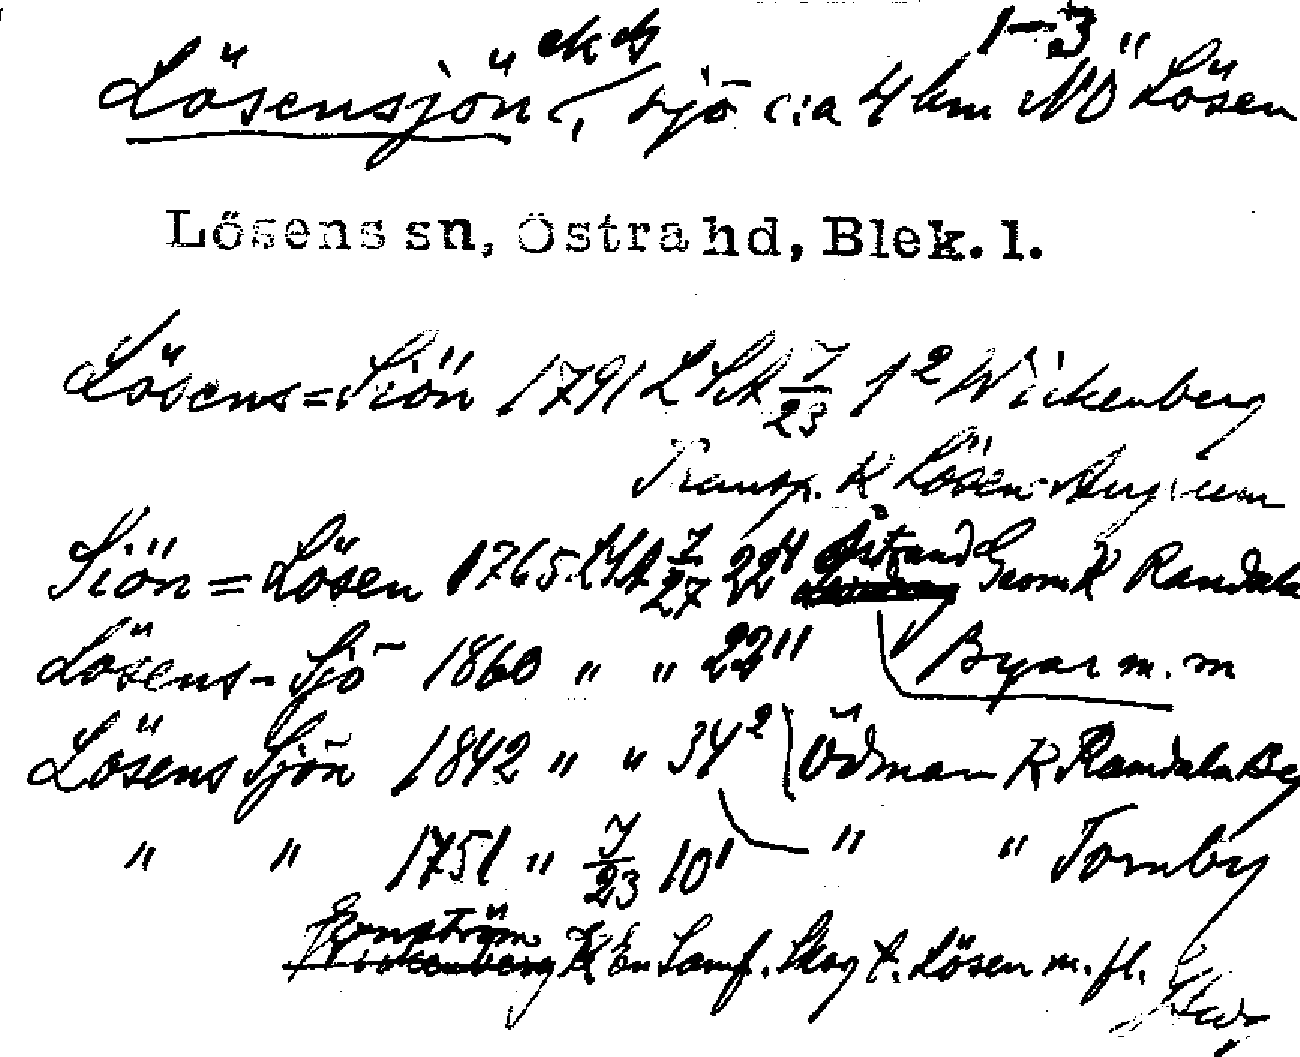 ek ds 1-3
Lösensjön, sjö c:a 4 km NO Lösen
Lösens sn, Östra hd, Blek. l.
Lösens=Siön 1791 LSA 7/23 1² Wickenberg
Transp. K Lösen
Siön=Lösen 1765 LSA 7/27 22 Östrand Geom K Randala
Lösens-Sjö 1860 " " 22" Byar m.m
Lösens Sjön 1842 " " 34² Ödman K Randala By
" " 1751 " 7/23 10' " " Tornby
Enström K En Samf. Skog t. Lösen m. fl.